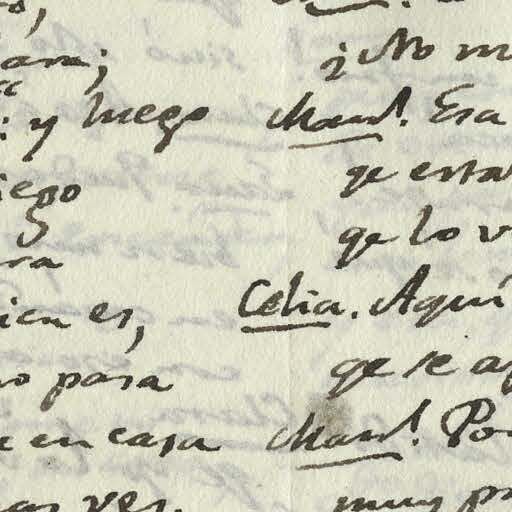 y luego
iego
ra
ien es,
no para
en casa
ver.
¿No m
Man.l Esa
qe esta
qe lo v
Celia. Aquí
qe se a
Man.l Po
muy p